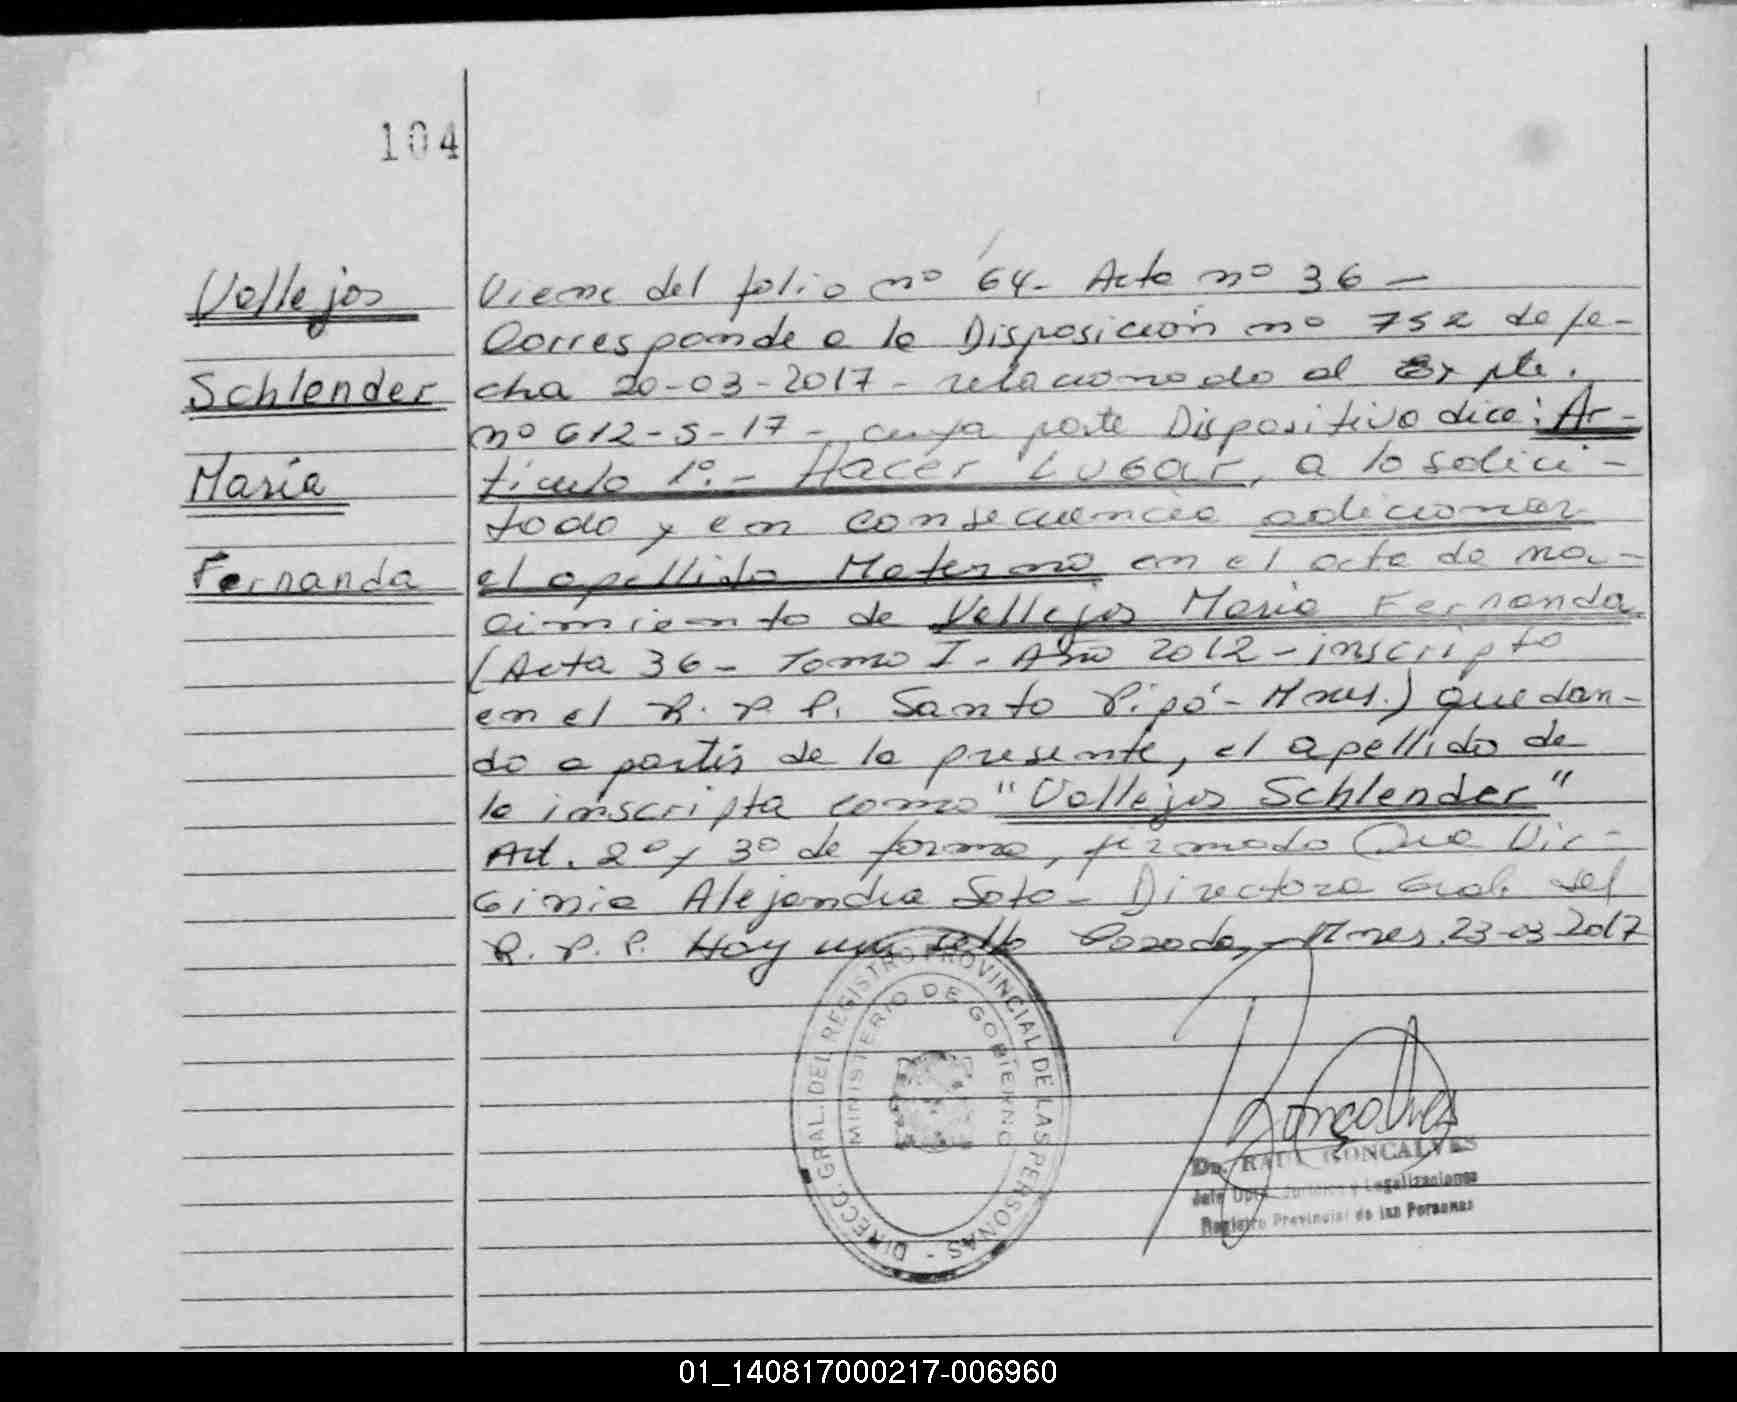 104
Vallejos
Schlender
María
Fernanda
Viene del folio nº 64- Acta nº 36 -
Corresponde a la Disposición nº 752 de fe-
cha 20-03-2017- relacionado al Expte.
nº 612-S-17-, cuya parte Dispositiva dice: Ar-
tículo 1º.- Hacer Lugar, a lo solici-
tado y en consecuencia adicionar
el apellido Materno en el acta de na-
cimiento de Vallejos María Fernanda
(Acta 36- Tomo I- Año 2012- inscripta
en el R. P. P. Santo Pipó- Mnes.) quedan-
do a partir de la presente, el apellido de
la inscripta como "Vallejos Schlender"
Art. 2º y 3º de forma, firmado Vir-
ginia Alejandra Soto- Directora Gral. del
R. P. P. Hay un sello Posadas, Mnes. 23-03-2017
DIRECC. GRAL. DEL REGISTRO PROVINCIAL DE LAS PERSONAS -
MINISTERIO DE GOBIERNO
Gonçalves
Dr. RAUL GONCALVES
Jefe Dpto. Jurídico y Legalizaciones
Registro Provincial de las Personas
01_140817000217-006960